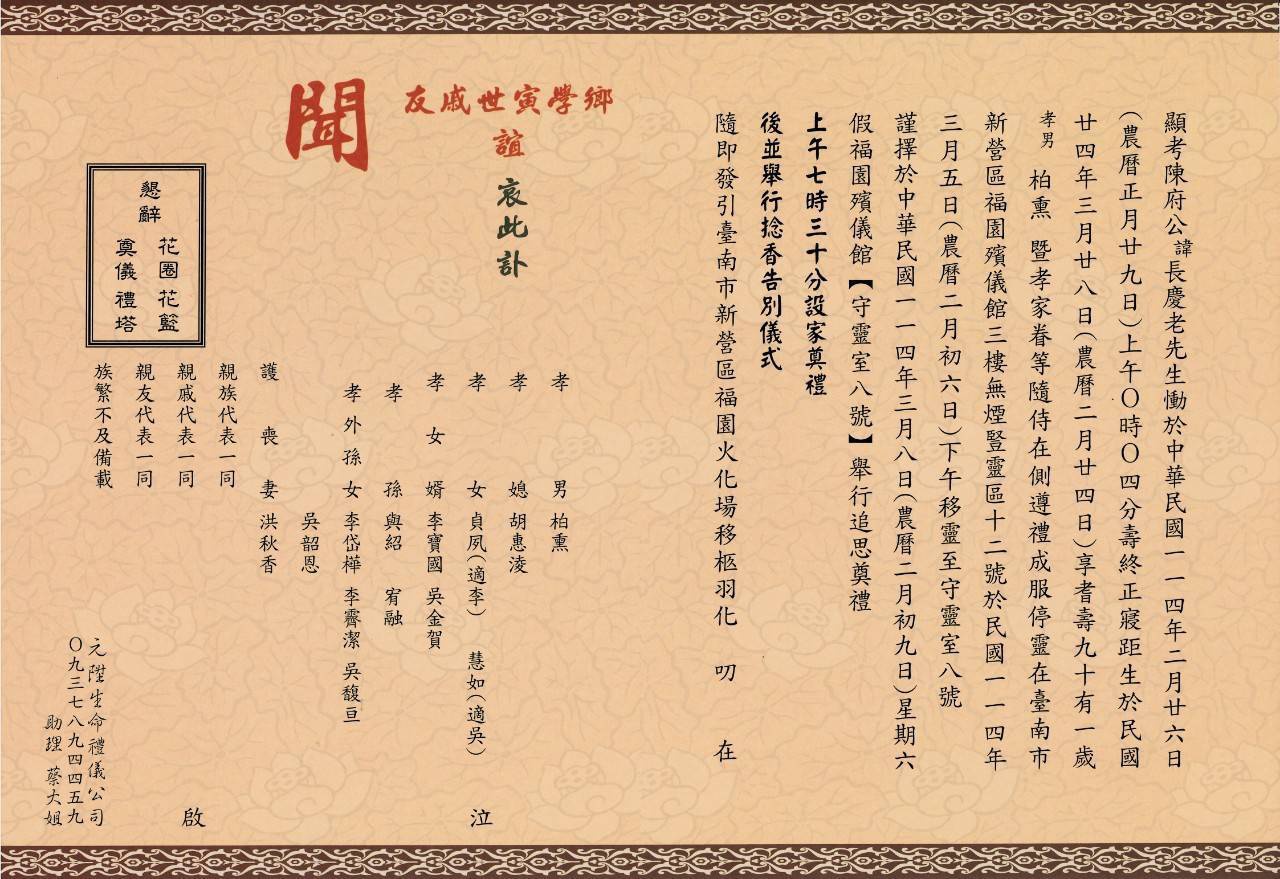 顯考陳府公諱長慶老先生慟於中華民國一一四年二月廿六日
(農曆正月廿九日)上午〇時〇四分壽終正寢距生於民國
廿四年三月廿八日(農曆二月廿四日)享耆壽九十有一歲
孝男 柏熏 暨孝家眷等隨侍在側遵禮成服停靈在臺南市
新營區福園殯儀館三樓無煙豎靈區十二號於民國一一四年
三月五日(農曆二月初六日)下午移靈至守靈室八號
謹擇於中華民國一一四年三月八日(農曆二月初九日)星期六
假福園殯儀館【守靈室八號】舉行追思奠禮
上午七時三十分設家奠禮
後並舉行捻香告別儀式
隨即發引臺南市新營區福園火化場移柩羽化 叨 在
鄉學寅世戚友
誼
哀此訃
聞
孝 男 柏熏
孝 媳 胡惠淩
孝 女 貞夙(適李) 慧如(適吳)
孝女 婿 李寶國 吳金賀
孝 孫 與紹 宥融
孝外孫 女 李岱樺 李霽潔 吳馥亘
吳韶恩
護喪 妻 洪秋香
親族代表一同
親戚代表一同
親友代表一同
族繁不及備載
泣
啟
懇辭
花圈 花籃
奠儀 禮塔
元陞生命禮儀公司
〇九三七八九四四五九
助理 蔡大姐